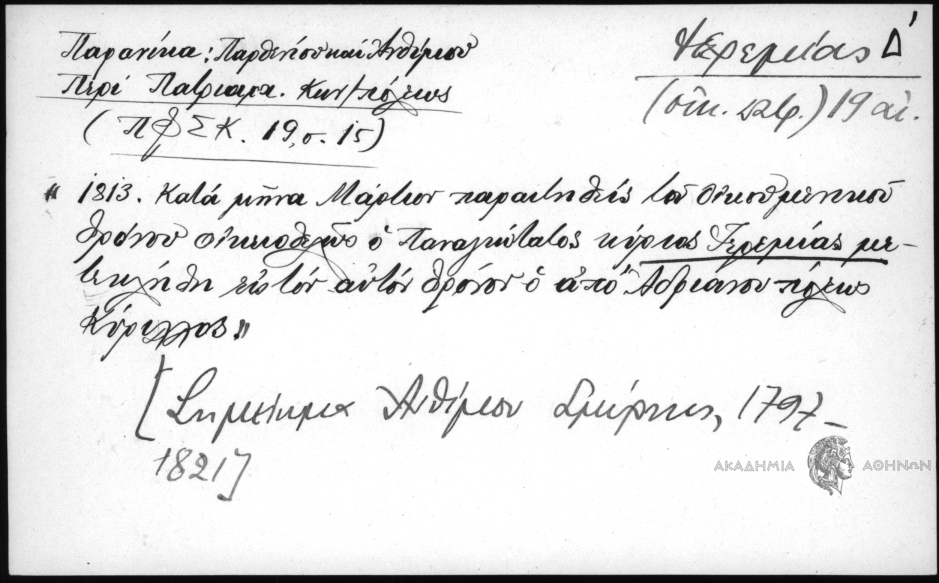 Παρανίκα: Παρθενίου καὶ Ἀνθίμου
Περί Πατριαρχ. Κων/πόλεως
(ΠΦΣΚ. 19, σ. 15)
Ἱερεμίας Δ'
(οἰκ. πατρ.) 19 αἰ.
" 1813. Κατά μῆνα Μάρτιον παραιτηθείς τοῦ οἰκουμενικοῦ
θρόνου οἰκειοθελῶς ὁ Παναγιώτατος κύριος Ἱερεμίας με-
τεκλήθη εἰς τόν αὐτόν θρόνον ὁ ἀπό Ἀδριανουπόλεως
Κύριλλος"
[Σημείωμα Ἀνθίμου Σμύρνης, 1797-
1821]
ΑΚΑΔΗΜΙΑ ΑΘΗΝΩΝ